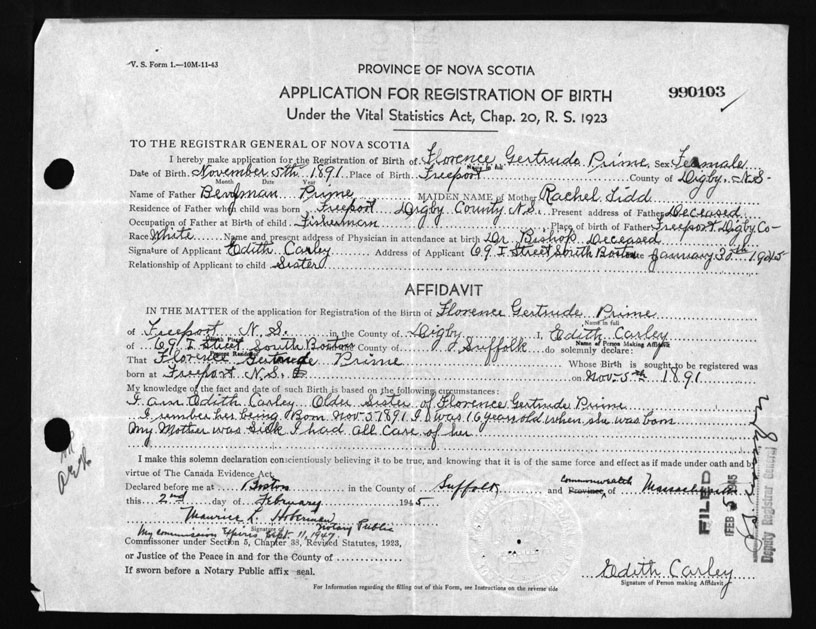 V. S. Form 1.—10M-11-43
PROVINCE OF NOVA SCOTIA
APPLICATION FOR REGISTRATION OF BIRTH
990103
Under the Vital Statistics Act, Chap. 20, R. S. 1923
TO THE REGISTRAR GENERAL OF NOVA SCOTIA
I hereby make application for the Registration of Birth of Florence Gertrude Prime Sex Female
Name in full
Date of Birth November 5th 1891 Place of Birth Freeport County of Digby. N.S.
Month Date Year
Name of Father Prime MAIDEN NAME of Mother Rachel Tidd
Residence of Father when child was born Freeport Digby County N.S. Present address of Father Deceased
Occupation of Father at Birth of child Fisherman Place of birth of Father Freeport Digby Co-
Race White Name and present address of Physician in attendance at birth Dr Bishop Deceased
Signature of Applicant Edith Carley Address of Applicant 69 I Street South Boston Date January 30th 1945
Relationship of Applicant to child Sister
AFFIDAVIT
IN THE MATTER of the application for Registration of the Birth of Florence Gertrude Prime
Name in full
of Freeport N.S. in the County of Digby I, Edith Carley
Name of Person Making Affidavit
of 69 I Street South Boston County of Suffolk do solemnly declare:
That Florence Gertrude Prime Whose Birth is sought to be registered was
born at Freeport N.S. on Nov-5th 1891
My knowledge of the fact and date of such Birth is based on the following circumstances:
I am Edith Carley Older Sister of Florence Gertrude Prime
I rember her being Born Nov 5 1891 I was 16 years old when she was born
My Mother was Sick I had all care of her
I make this solemn declaration conscientiously believing it to be true, and knowing that it is of the same force and effect as if made under oath and by
virtue of The Canada Evidence Act.
Declared before me at Boston in the County of Suffolk and Commonwealth Province of Massachusetts
this 2nd day of February 1945
Maurice L. Hoberman
Signature of Notary Public
My commission Expires Sept. 11, 1947
Commissioner under Section 5, Chapter 38, Revised Statutes, 1923,
or Justice of the Peace in and for the County of
If sworn before a Notary Public affix seal.
Edith Carley
Signature of Person making Affidavit
For Information regarding the filling out of this Form, see Instructions on the reverse side
FILED
FEB 5 1945
Deputy Registrar General